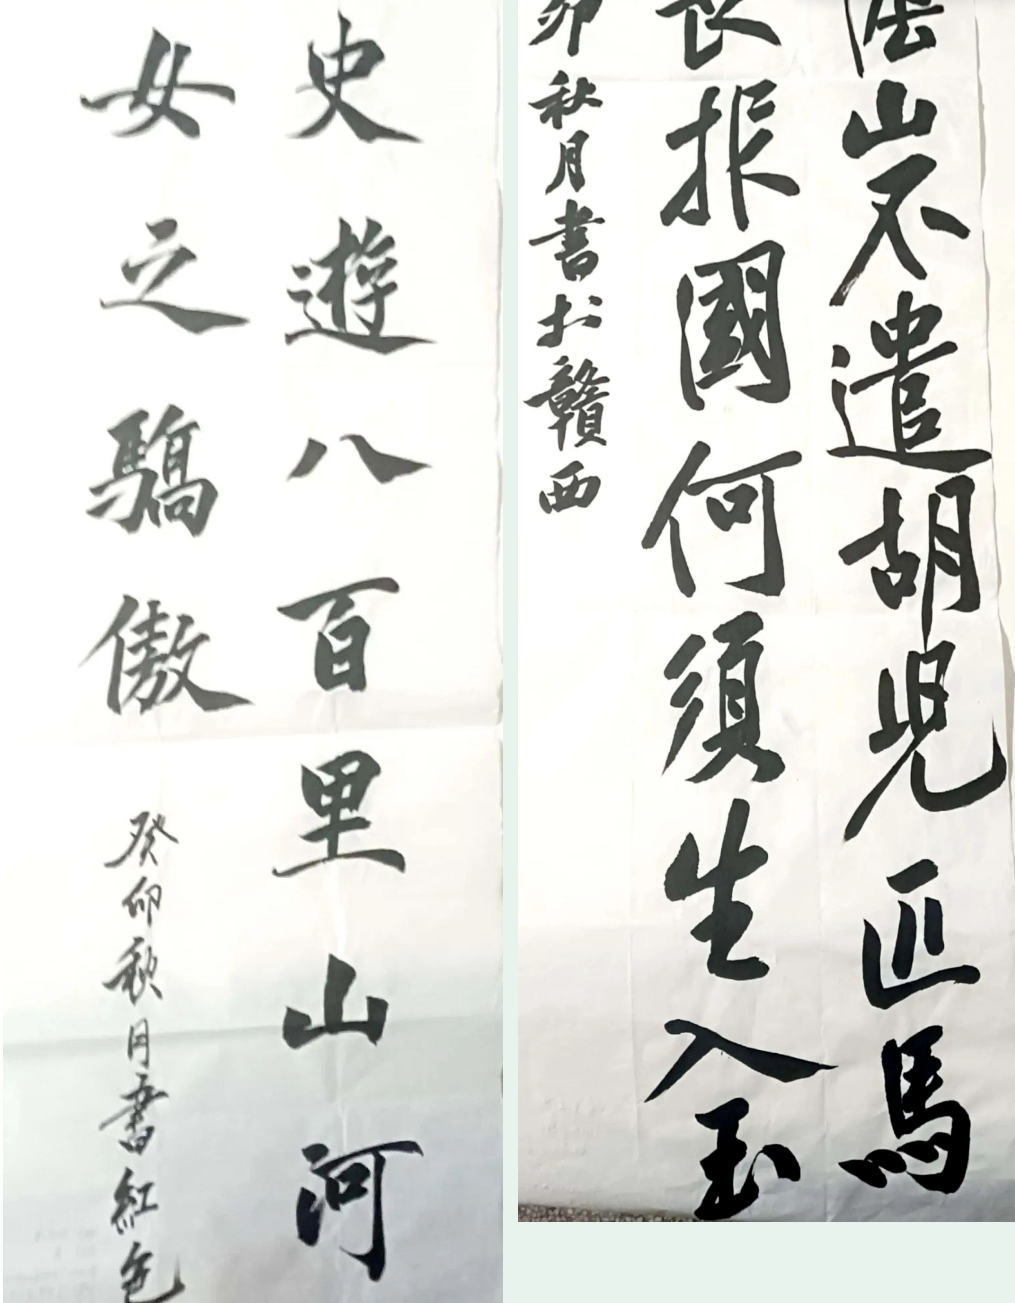 史遊八百里山河
女之驕傲
癸卯秋月書紅色
陰山不遣胡兒匹馬
長报國何須生入玉
卯秋月書扵贛西